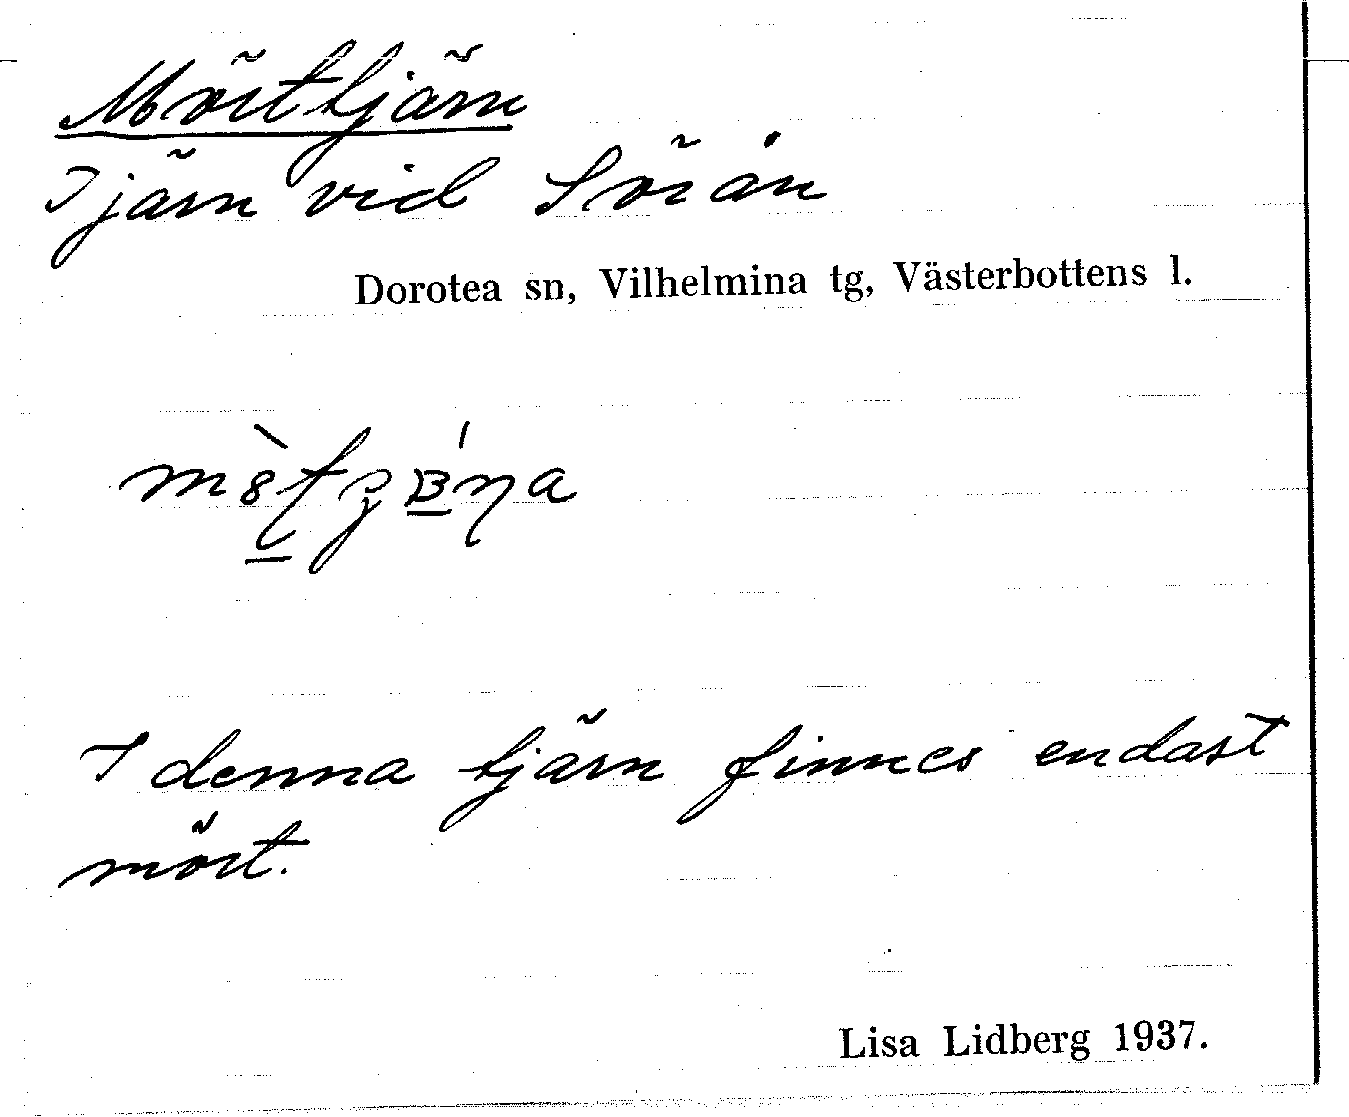 Mörttjärn
Tjärn vid Sörån
Dorotea sn, Vilhelmina tg, Västerbottens l.
I denna tjärn finnes endast
mört.
Lisa Lidberg 1937.